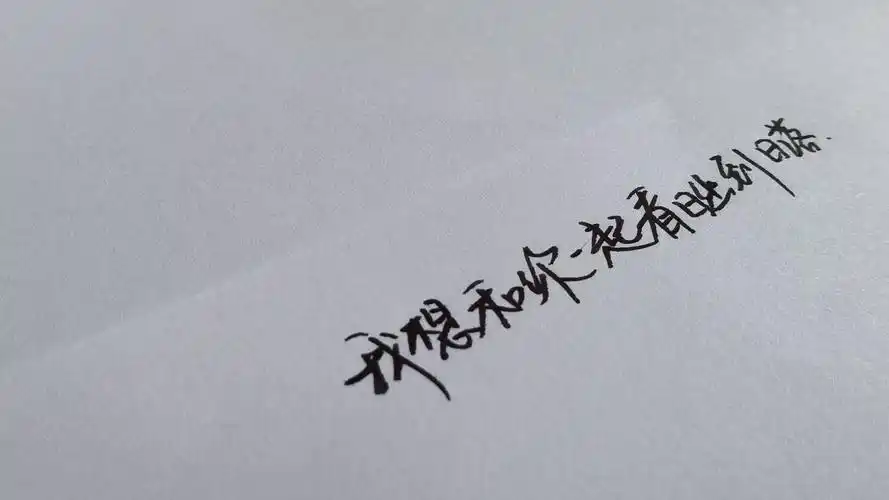 我想和你一起看日出到日落.